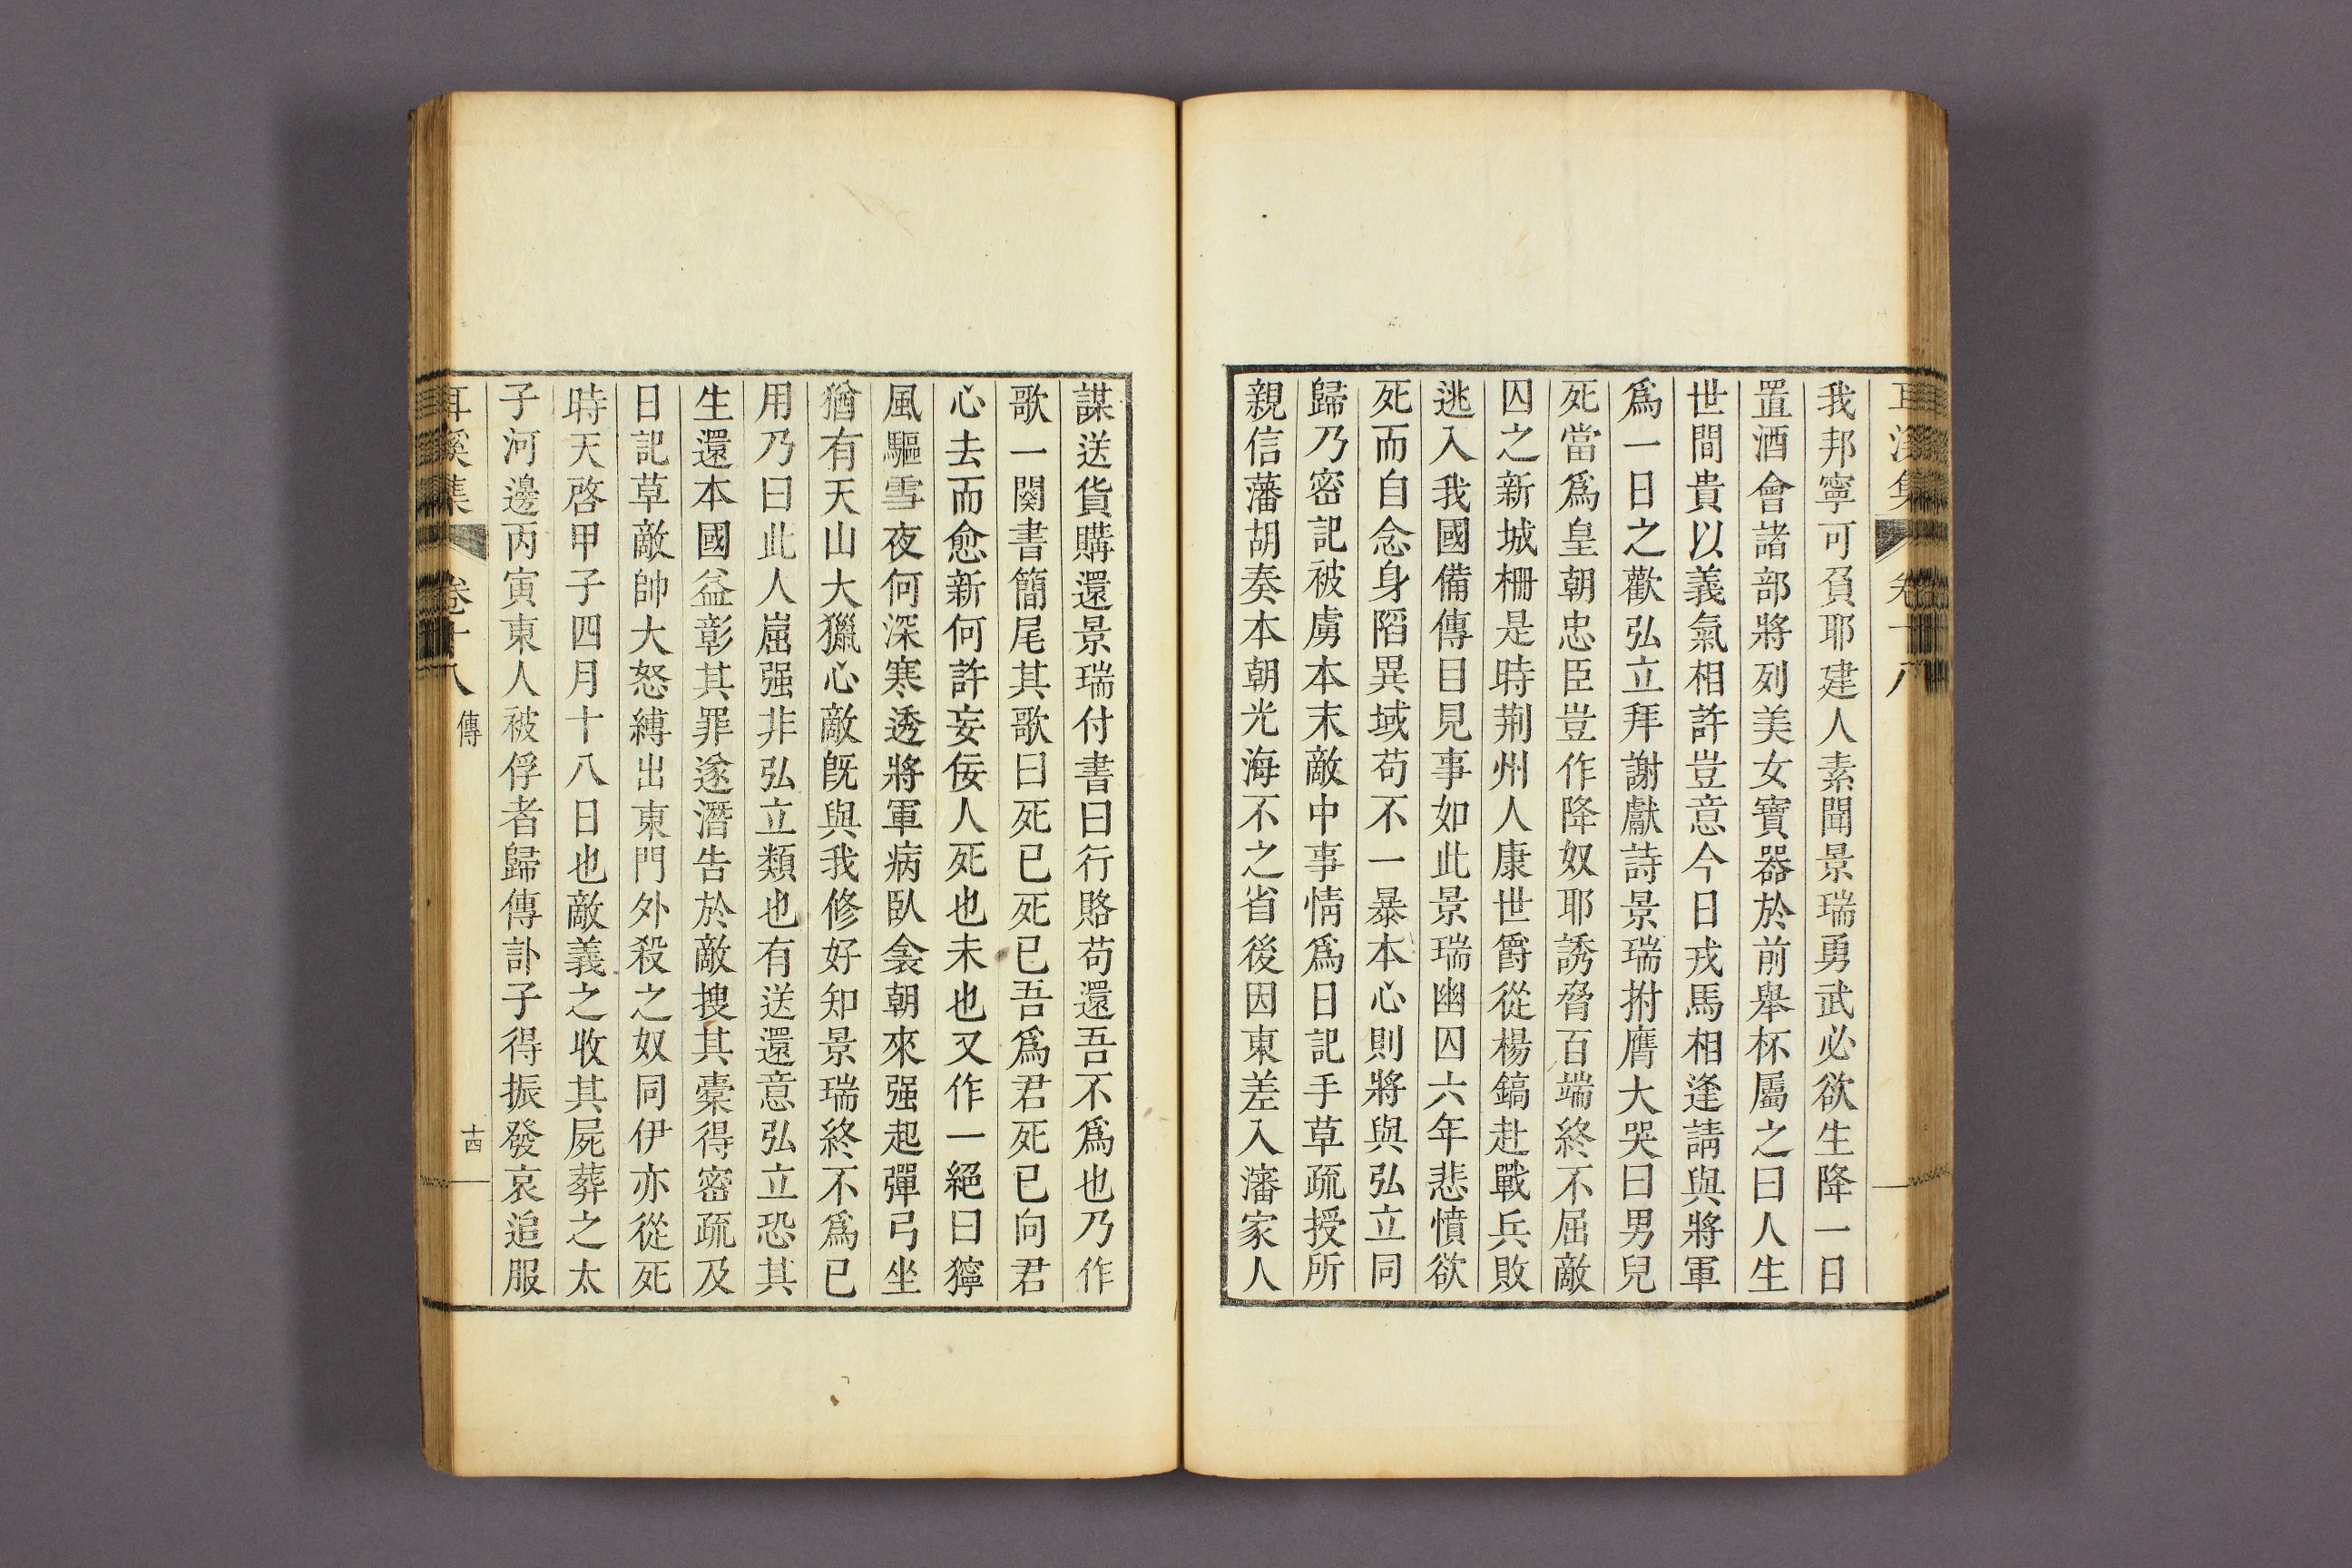 耳溪集 卷十八
我邦寧可負耶建人素聞景瑞勇武必欲生降一日
置酒會諸部將列美女寶器於前舉杯屬之曰人生
世間貴以義氣相許豈意今日戎馬相逢請與將軍
爲一日之歡弘立拜謝獻詩景瑞拊膺大哭曰男兒
死當爲皇朝忠臣豈作降奴耶誘脅百端終不屈敵
囚之新城柵是時荆州人康世爵從楊鎬赴戰兵敗
逃入我國備傳目見事如此景瑞幽囚六年悲憤欲
死而自念身陷異域苟不一暴本心則將與弘立同
歸乃密記被虜本末敵中事情爲日記手草疏授所
親信藩胡奏本朝光海不之省後因東差入瀋家人
謀送貨購還景瑞付書曰行賂苟還吾不爲也乃作
歌一闋書簡尾其歌曰死已死已吾爲君死已向君
心去而愈新何許妄佞人死也未也又作一絕曰獰
風驅雪夜何深寒透將軍病臥衾朝來强起彈弓坐
猶有天山大獵心敵旣與我修好知景瑞終不爲已
用乃曰此人崛强非弘立類也有送還意弘立恐其
生還本國益彰其罪遂潛告於敵搜其橐得密疏及
日記草敵帥大怒縛出東門外殺之奴同伊亦從死
時天啓甲子四月十八日也敵義之收其屍葬之太
子河邊丙寅東人被俘者歸傳訃子得振發哀追服
耳溪集 卷十八 傳 十四